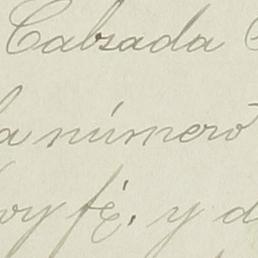 Calzada
a número
oy fé. y d